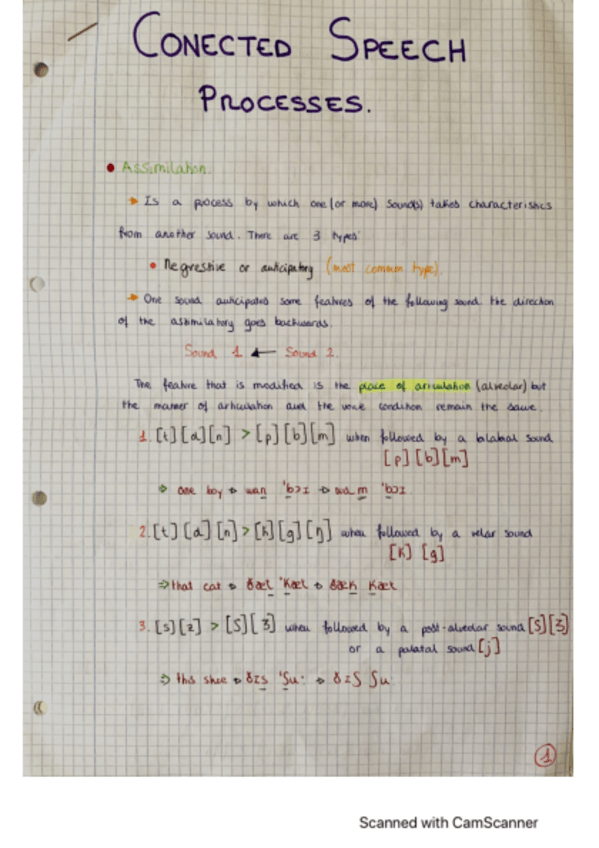 CONECTED SPEECH
PROCESSES.
• Assimilation.
➔ Is a process by which one (or more) sound(s) takes characteristics
from another sound. There are 3 types:
• Regressive or anticipatory (most common type).
➔ One sound anticipates some features of the following sound the direction
of the assimilatory goes backwards.
Sound 1 ← Sound 2.
The feature that is modified is the place of articulation (alveolar) but
the manner of articulation and the voice condition remain the same.
1. [t] [d] [n] > [p] [b] [m] when followed by a bilabial sound
[p] [b] [m]
⇒ one boy → wʌn 'bɔɪ → wʌm 'bɔɪ
2. [t] [d] [n] > [k] [g] [ŋ] when followed by a velar sound
[k] [g]
⇒ that cat → ðæt 'kæt → ðæk kæt
3. [s] [z] > [ʃ] [ʒ] when followed by a post-alveolar sound [ʃ] [ʒ]
or a palatal sound [j]
⇒ this shoe → ðɪs 'ʃu: → ðɪʃ ʃu:
1
Scanned with CamScanner